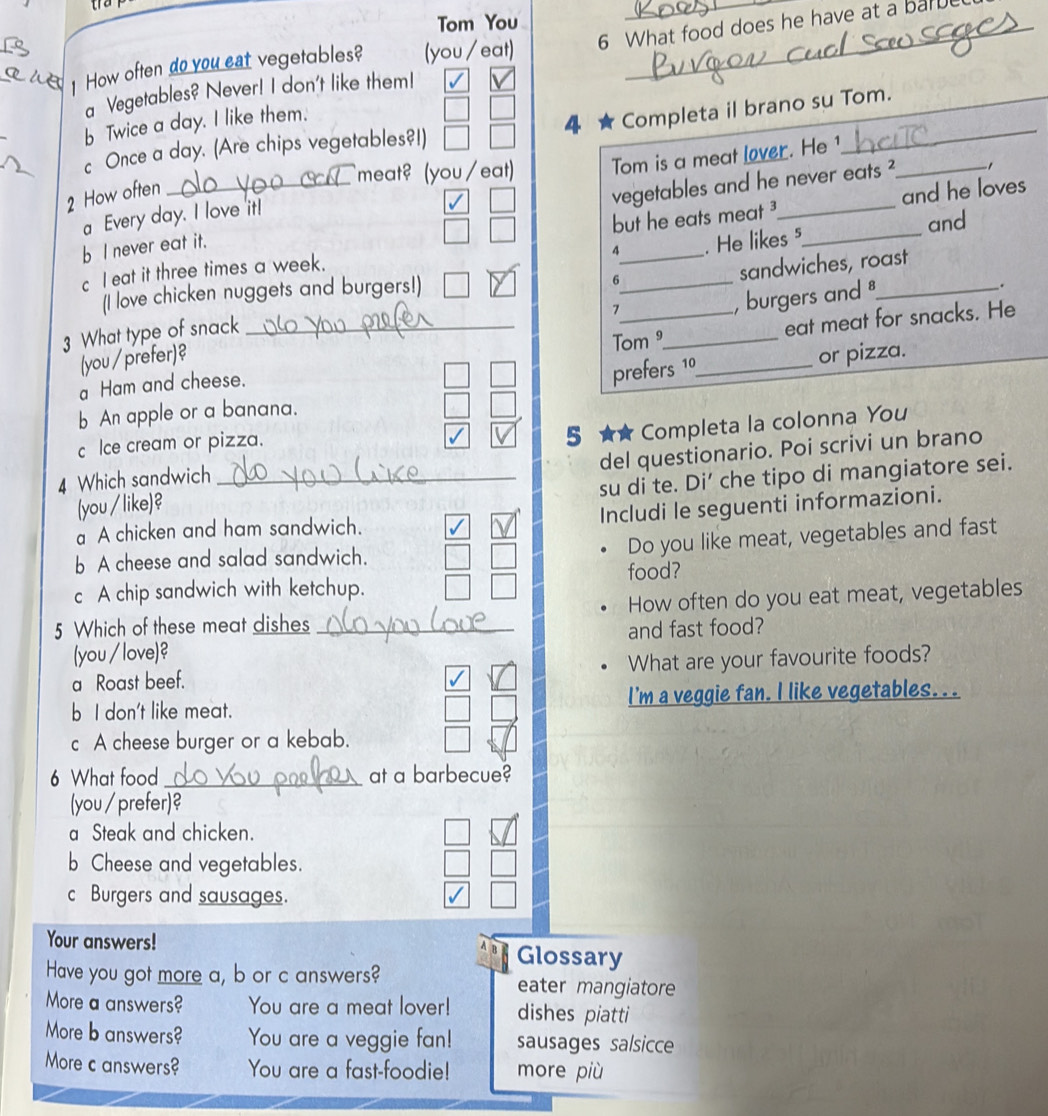 Tom You
1 How often do you eat vegetables? (you / eat)
a Vegetables? Never! I don't like them! ✓ ✓
b Twice a day. I like them.
c Once a day. (Are chips vegetables?!)
2 How often do you eat meat? (you / eat)
a Every day. I love it! ✓
b I never eat it.
c I eat it three times a week.
(I love chicken nuggets and burgers!) ✓
3 What type of snack do you prefer
(you / prefer)?
a Ham and cheese.
b An apple or a banana.
c Ice cream or pizza. ✓ ✓
4 Which sandwich do you like
(you / like)?
a A chicken and ham sandwich. ✓ ✓
b A cheese and salad sandwich.
c A chip sandwich with ketchup.
5 Which of these meat dishes do you love
(you / love)?
a Roast beef. ✓ ✓
b I don't like meat.
c A cheese burger or a kebab. ✓
6 What food do you prefer at a barbecue?
(you / prefer)?
a Steak and chicken. ✓
b Cheese and vegetables.
c Burgers and sausages. ✓
Your answers!
Have you got more a, b or c answers?
More a answers? You are a meat lover!
More b answers? You are a veggie fan!
More c answers? You are a fast-foodie!
Glossary
eater mangiatore
dishes piatti
sausages salsicce
more più
6 What food does he have at a
4 ★ Completa il brano su Tom.
Tom is a meat lover. He 1 hate
vegetables and he never eats 2 ,
but he eats meat 3 and he loves
4 . He likes 5 and
6 sandwiches, roast
7 , burgers and 8 .
Tom 9 eat meat for snacks. He
prefers 10 or pizza.
5 ★★ Completa la colonna You
del questionario. Poi scrivi un brano
su di te. Di' che tipo di mangiatore sei.
Includi le seguenti informazioni.
• Do you like meat, vegetables and fast
food?
• How often do you eat meat, vegetables
and fast food?
• What are your favourite foods?
I'm a veggie fan. I like vegetables...